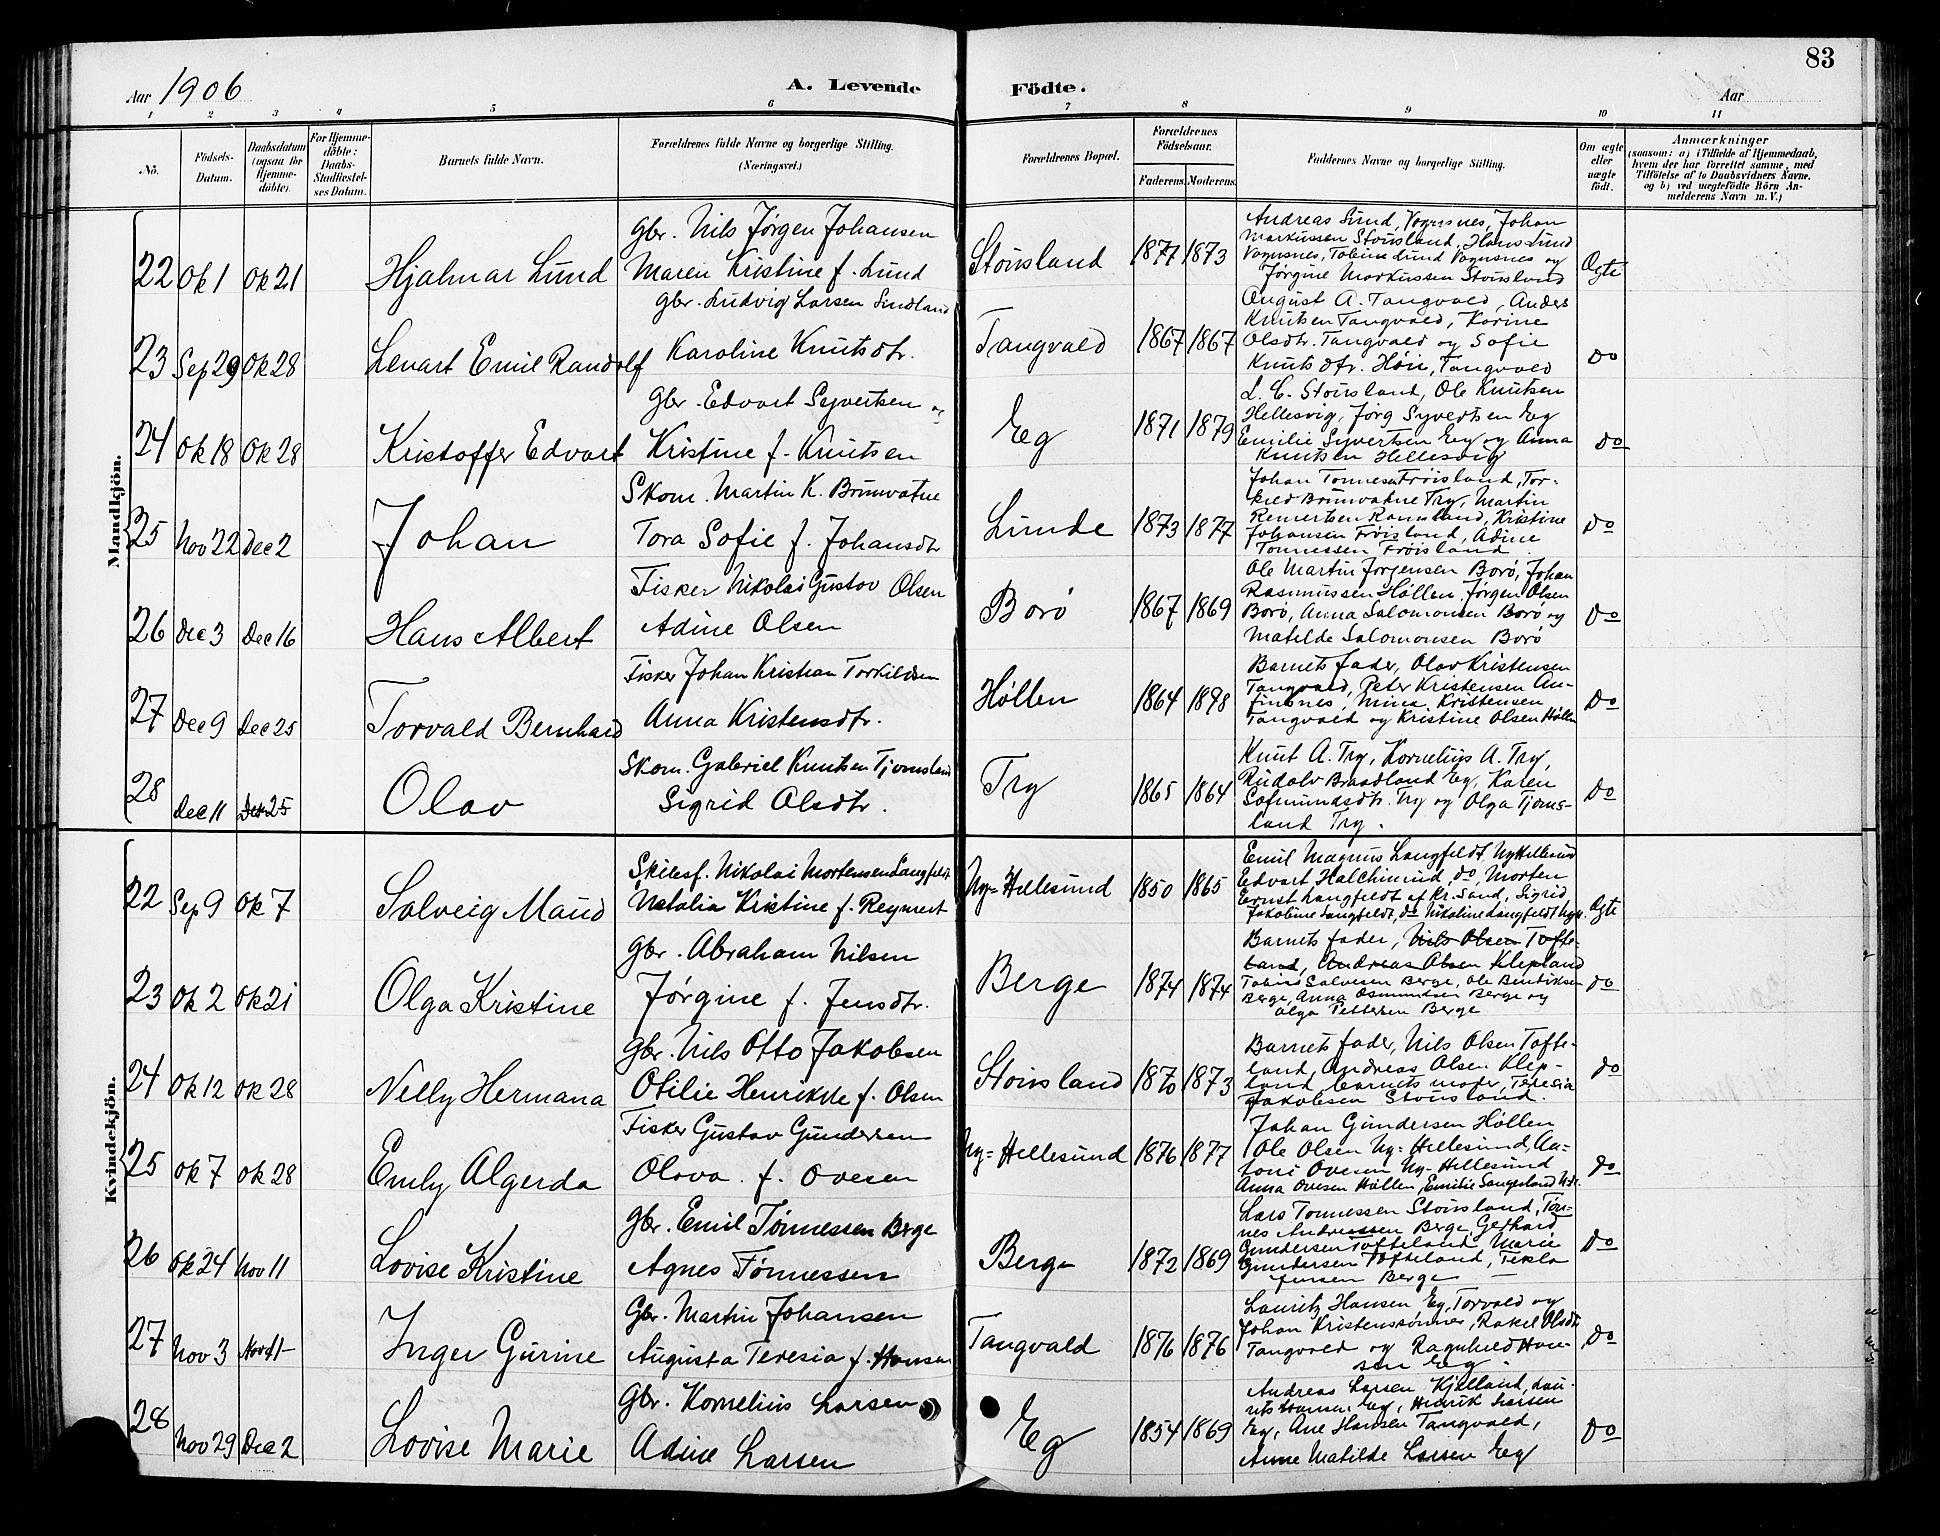 83
Aar 1906
A. Levende Födte.
Aar
1 2 3 4 5 6 7 8 9 10 11
No.
Födsels-Datum.
Daabsdatum (ogsaa for Hjemme-döbte).
For Hjemme-döbte: Daabs-Stadfæstel-ses Datum.
Barnets fulde Navn.
Forældrenes fulde Navne og borgerlige Stilling. (Næringsvei.)
Forældrenes Bopæl.
Forældrenes Födselsaar.
Faderens. Moderens.
Faddernes Navne og borgerlige Stilling.
Om ægte eller uægte födt.
Anmærkninger
(saasom: a) i Tilfælde af Hjemmedaab,
hvem der har forrettet samme, med
Tilföielse af to Daabsvidners Navne,
og b) ved uægtefödte Börn An-
melderens Navn m. V.)
Mandkjön.
22 Ok 1 Ok 21 Hjalmar Lund
Gbr. Nils Jørgen Johansen
Maren Kristine f. Lund
Stousland 1877 1873
Andreas Lund, Vognsnes, Johan
Markussen Stousland, Hans Lund
Vognsnes, Tobine Lund Vognsnes og
Jørgine Markussen Stousland
Ægte
23 Sep 29 Ok 28 Lenart Emil Randolf
Gbr. Ludvig Larsen Sindland
Karoline Knutsdtr.
Tangvald 1867 1867
August A. Tangvald, Anders
Knutsen Tangvald, Karine
Olsdtr. Tangvald og Sofie
Knutsdtr. Høii, Tangvald
Do
24 Ok 18 Ok 28 Kristoffer Edvart
Gbr. Edvart Syvertsen og
Kristine f. Knutsen
Eg 1871 1879
L. C. Stousland, Ole Knutsen
Hellesvig, Jørg Syvertsen Eg
Emilie Syvertsen Eg og Anna
Knutsen Hellesvig
Do
25 Nov 22 Dec 2 Johan
Skom. Martin K. Brunvatne
Tora Sofie f. Johansdtr
Lunde 1873 1877
Johan Tønnesen Frøisland, Tor-
kred Brunvatne Try, Martin
Remertsen Ramsland, Kristine
Johansen Frøisland, Adine
Tønnessen Frøisland.
Do
26 Dec 3 Dec 16 Hans Albert
Fisker Nikolai Gustav Olsen
Adine Olsen
Borø 1867 1869
Ole Martin Jørgensen Borø, Johan
Rasmussen Høllen, Jørgen Olsen
Borø, Anna Salomonsen Borø og
Matilde Salomonsen Borø
Do
27 Dec 9 Dec 25 Torvald Bernhard
Fisker Johan Kristian Torkildsen
Anna Kristensdtr.
Høllen 1864 1898
Barnets fader, Olav Kristensen
Tangvald, Peter Kristensen Au-
, Mina Kristensen
Tangvald og Kristine Olsen Høllen
Do
28 Dec 11 Dec 25 Olav
Skom. Gabriel Knutsen Tjomsland
Sigrid Olsdtr.
Try 1865 1864
Knut A. Try, Kornelius A. Try,
Rudolv Braadland Eg, Karen
Try og Olga Tjoms-
land Try.
Do
Kvindekjön.
22 Sep 9 Ok 7 Solveig Maud
Skilesf. Nikolai Mortensen Langfeldt
Natalia Kristine f. Reymert
Ny-Hellesund 1850 1865
Emil Magnus Langfeldt, NyHellesund
Edvart Halchimind, do, Morten
Ernst Langfeldt af Kr.Sand, Sigrid
Jakobine Langfeldt, do Nikoline Langfeldt
Ægte
23 Ok 2 Ok 21 Olga Kristine
Gbr. Abraham Nilsen
Jørgine f. Jensdtr.
Berge 1874 1874
Barnets fader, Nils Olsen Tofte-
land, Andreas Olsen Klepland
Tobias Salvesen Berge, Ole Bentiksen
Berge, Anna Osmundsen Berge og
Olga Pettersen Berge
Do
24 Ok 12 Ok 28 Nelly Hermana
Gbr. Nils Otto Jakobsen
Otilie Henrikke f. Olsen
Stousland 1870 1873
Barnets fader, Nils Olsen Tofte-
land, Andreas Olsen Klep-
land, barnets moder, Teresia
Jakobsen Stousland.
Do
25 Ok 7 Ok 28 Emly Algerda
Fisker Gustav Gundersen
Olava f. Ovesen
Ny-Hellesund 1876 1877
Johan Gundersen Høllen
Ole Olsen Ny-Hellesund, An-
toni Ovesen Ny-Hellesund
Anna Ovesen Høllen, Emilie
Do
26 Ok 24 Nov 11 Lovise Kristine
Gbr. Emil Tønnessen Berge
Agnes Tønnessen
Berge 1872 1869
Lars Tønnessen Stousland, Tøn-
nes Andreassen Berge, Gerhard
Gundersen Tofteland, Marie
Gundersen Tofteland, Tekla
Jensen Berge
Do
27 Nov 3 Nov 11 Inger Gurine
Gbr. Martin Johansen
Augusta Teresia f. Hansen
Tangvald 1876 1876
Lauritz Hansen Eg, Torvald og
Johan Kristenssønner, Rakel Olsdtr
Tangvald og Ragnhild Han-
sen Eg.
Do
28 Nov 29 Dec 2 Lovise Marie
Gbr. Kornelius Larsen
Adine Larsen
Eg 1854 1869
Andreas Larsen Kjelland, Lau-
rits Hansen Eg, Hedrik Larsen
Eg, Ane Hansen Tangvald,
Anne Matilde Larsen Eg
Do